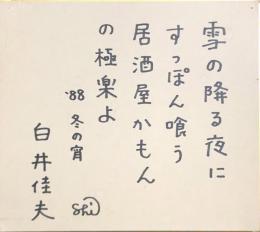 雪の降る夜に
すっぽん喰う
居酒屋かもん
の極楽よ
'88 冬の宵
白井佳夫 Shi